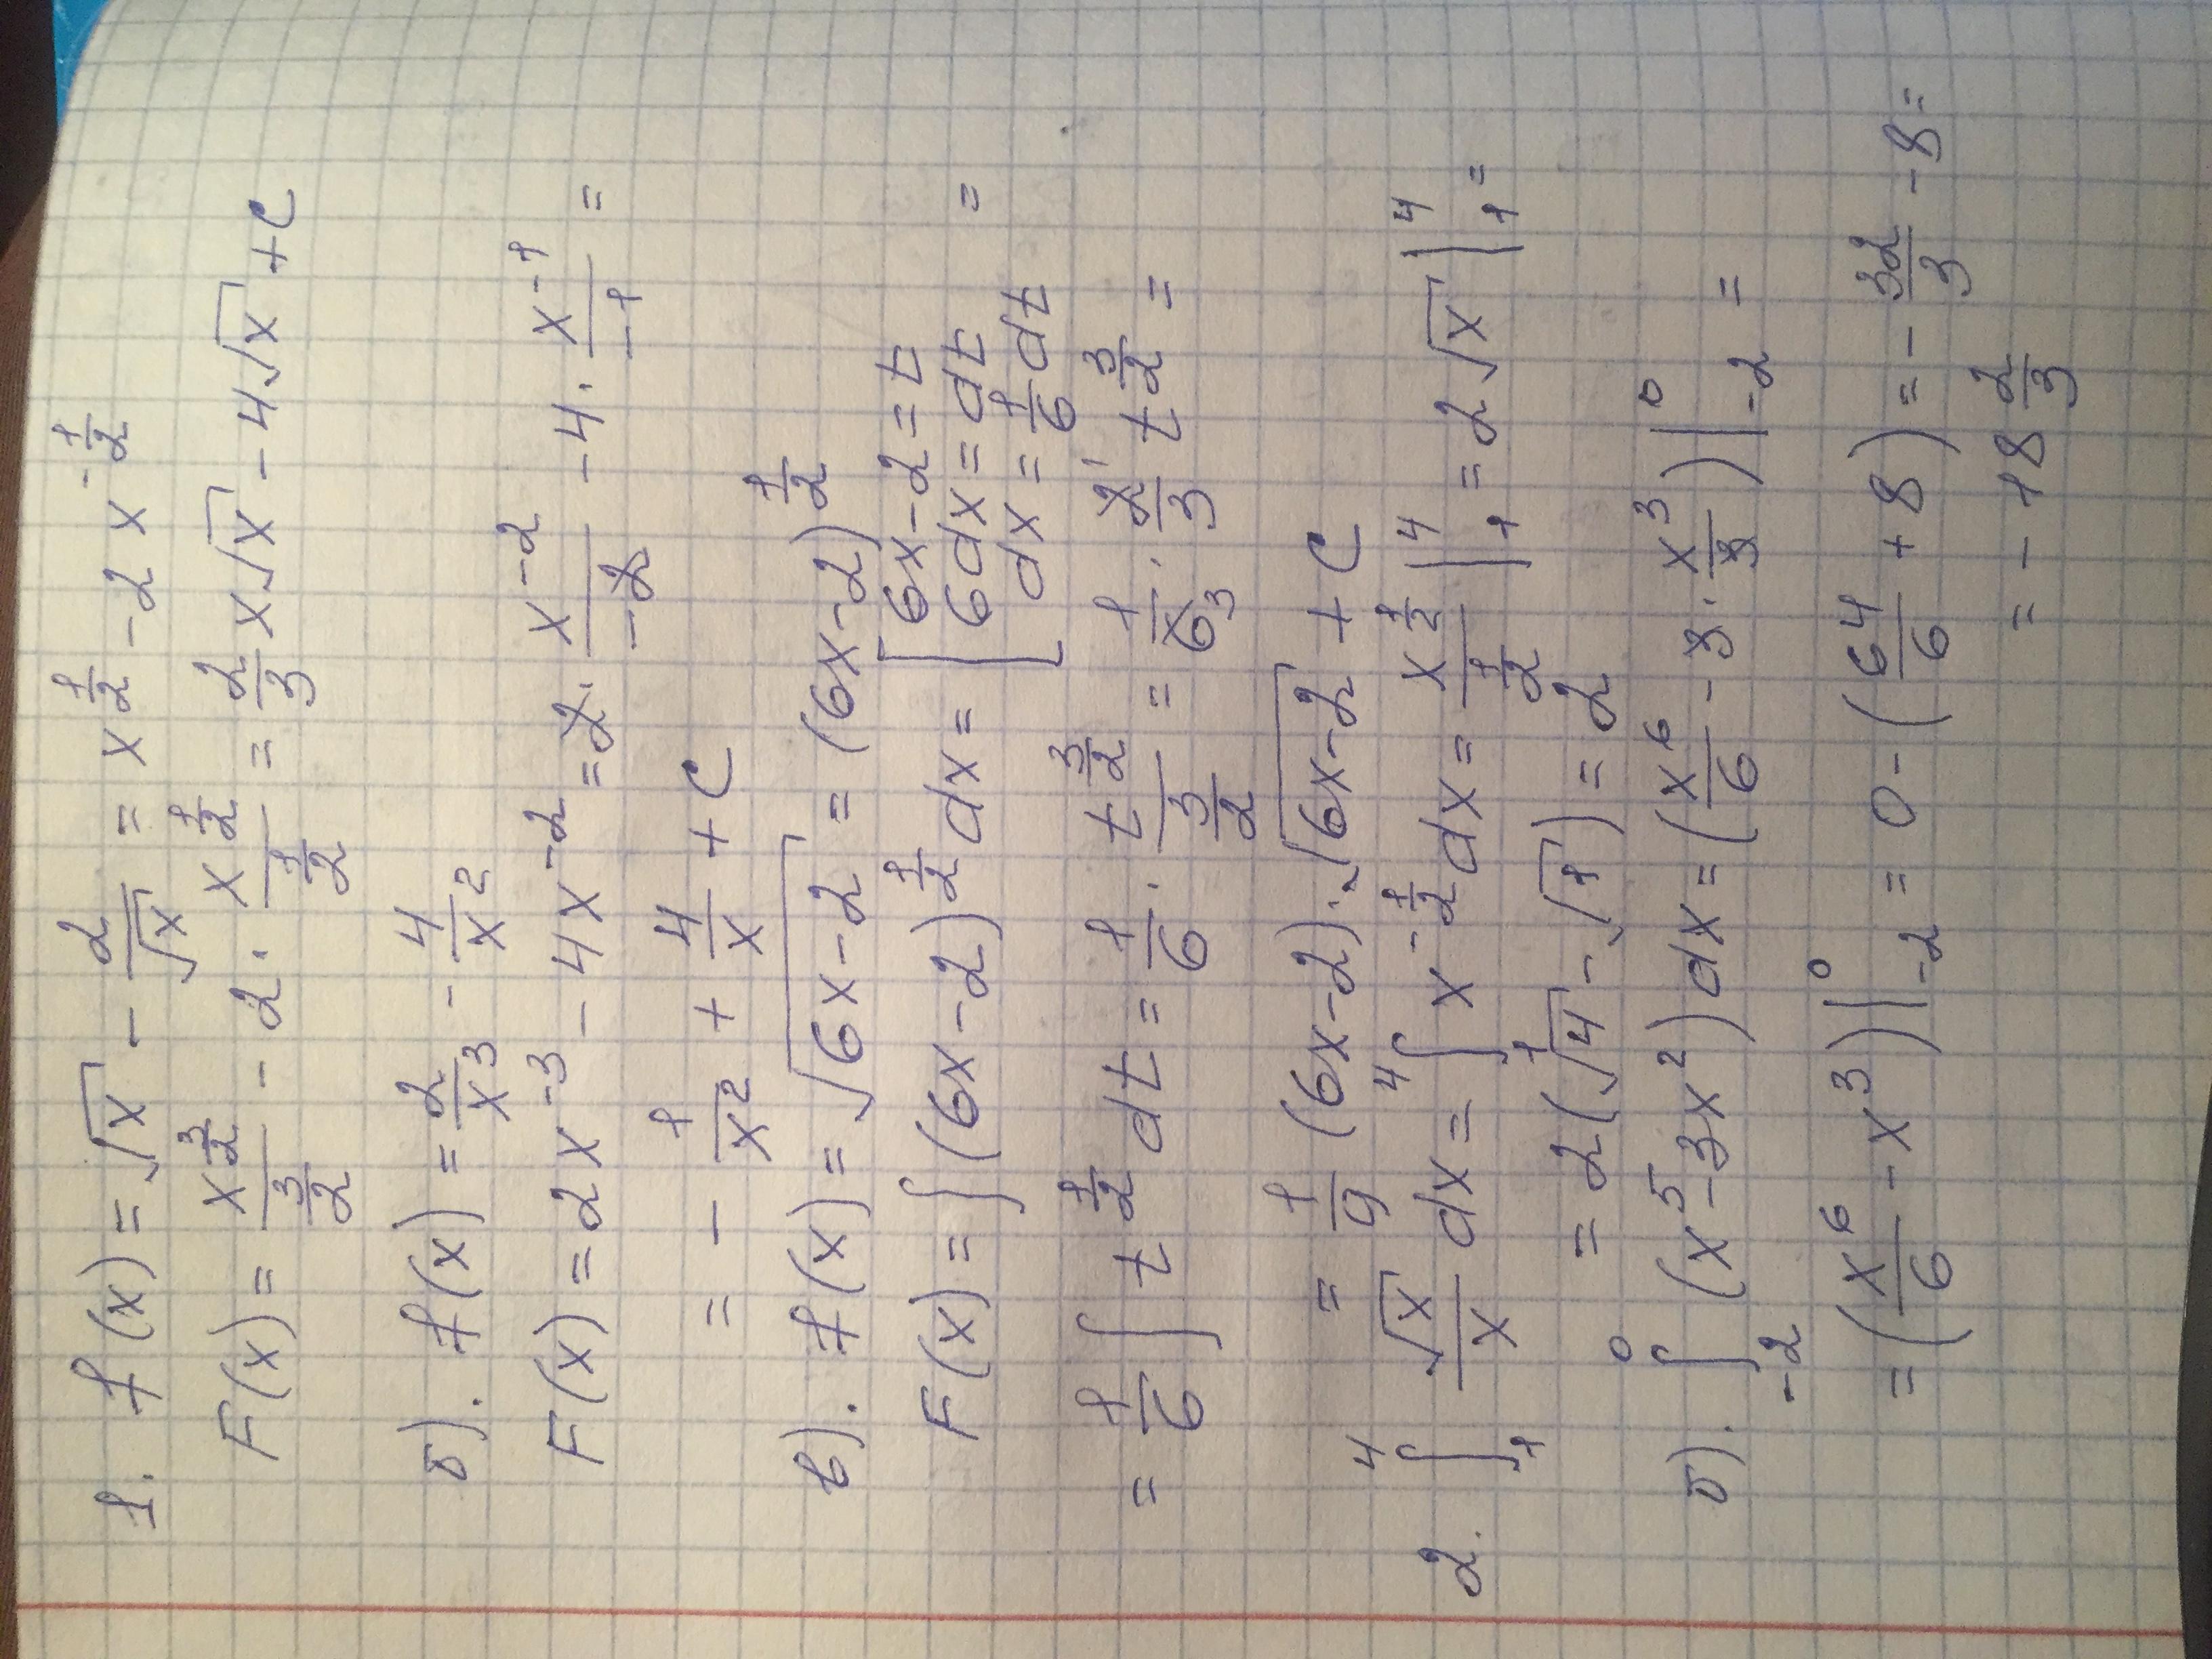 1. f(x) = √x - 2/√x = x^(1/2) - 2x^(-1/2)
F(x) = x^(3/2)/(3/2) - 2 · x^(1/2)/(1/2) = 2/3 x√x - 4√x + C
б). f(x) = 2/x³ - 4/x²
F(x) = 2x⁻³ - 4x⁻² = 2 · x⁻²/-2 - 4 · x⁻¹/-1 =
= - 1/x² + 4/x + C
в). f(x) = √(6x-2) = (6x-2)^(1/2)
F(x) = ∫(6x-2)^(1/2) dx = [6x-2 = t
6dx = dt
dx = 1/6 dt =
= 1/6 ∫ t^(1/2) dt = 1/6 · t^(3/2)/(3/2) = 1/6 3 · 2 1/3 t^(3/2) =
= 1/9 (6x-2) · √(6x-2) + C
2. ∫₁⁴ √x/x dx = ∫₁⁴ x^(-1/2) dx = x^(1/2)/(1/2) |₁⁴ = 2√x |₁⁴ =
= 2(√4 - √1) = 2
б). ∫₋₂⁰ (x⁵ - 3x²)dx = (x⁶/6 - 3 · x³/3)|₋₂⁰ =
= (x⁶/6 - x³)|₋₂⁰ = 0 - (64/6 + 8) = - 32/3 - 8 =
= - 18 2/3